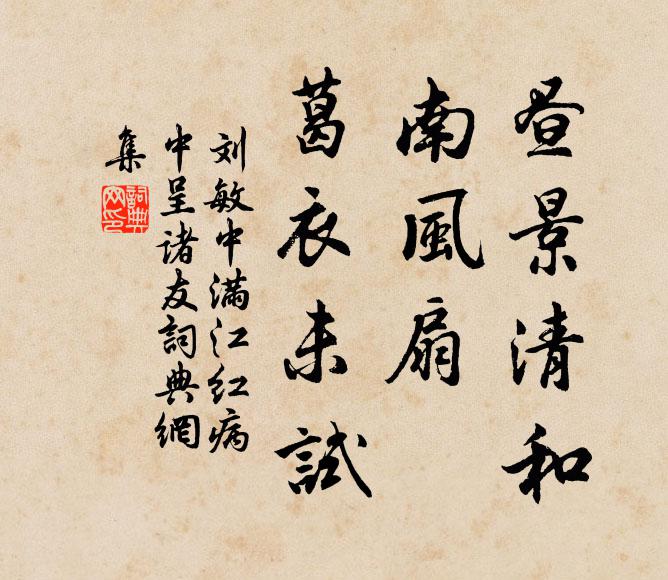 昼景清和
南風扇
葛衣未試
刘敏中满江红病
中呈诸友詞典網
集
詞典网印